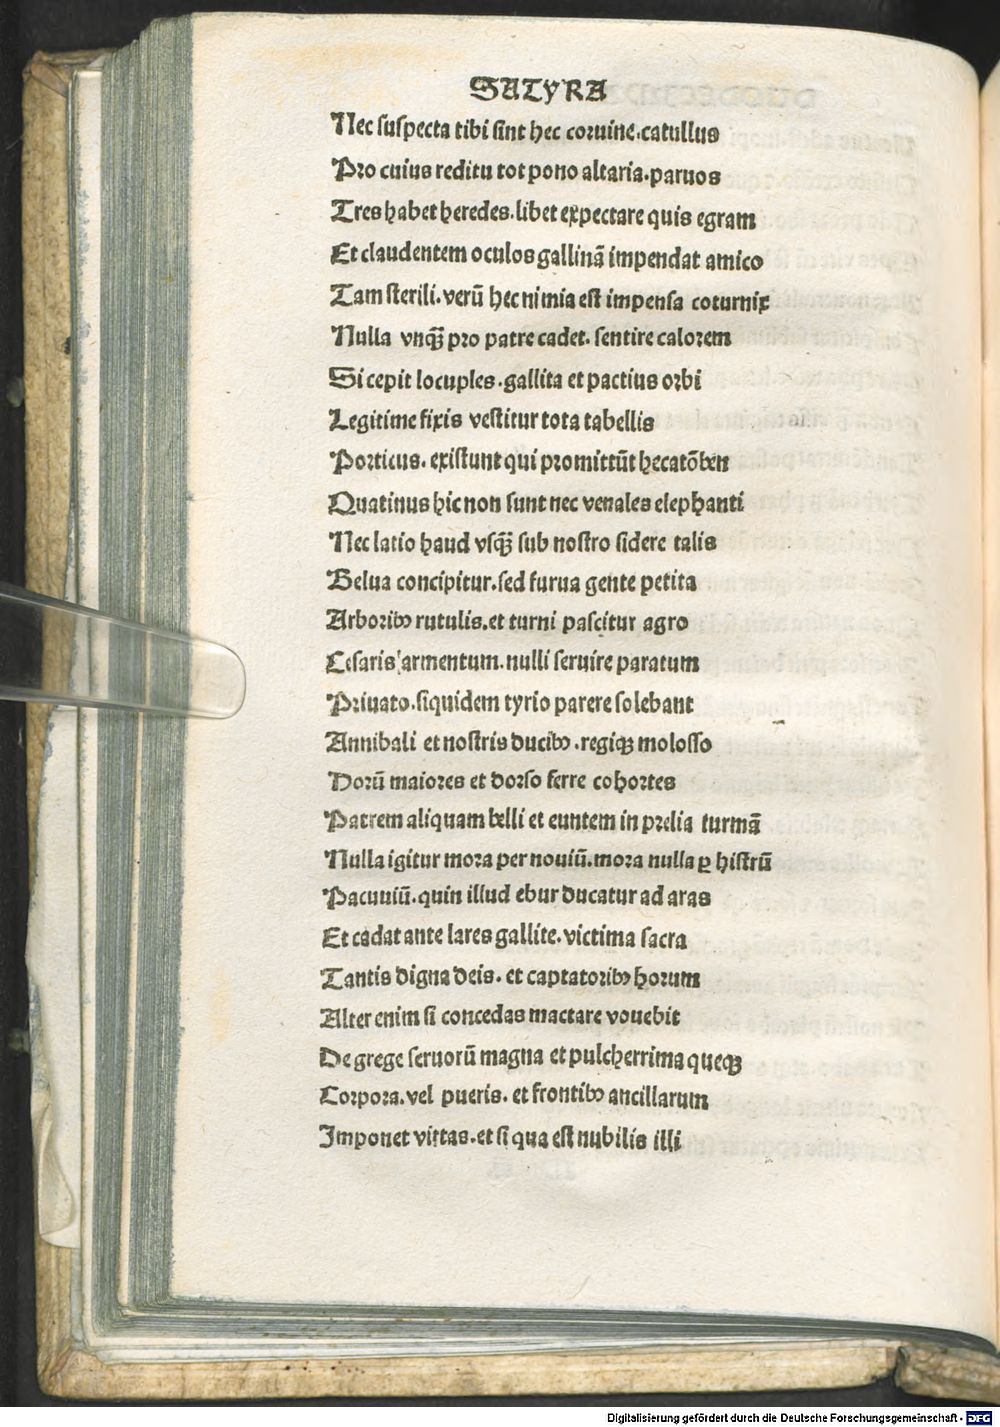 SATYRA
Nec suspecta tibi sint hec coruine.catullus
Pro cuius reditu tot pono altaria.paruos
Tres habet heredes.libet expectare quis egram
Et claudentem oculos gallinā impendat amico
Tam sterili.verū hec nimia est impensa coturnix
Nulla vnqȝ̄ pro patre cadet. sentire calorem
Si cepit locuples.gallita et pactius orbi
Legitime fixis vestitur tota tabellis
Porticus. existunt qui promittūt hecatōben
Quatinus hic non sunt nec venales elephanti
Nec latio haud vsqȝ̄ sub nostro sidere talis
Belua concipitur.sed furua gente petita
Arboribꝰ rutulis.et turni pascitur agro
Cesaris armentum.nulli seruire paratum
Priuato.siquidem tyrio parere solebant
Annibali et nostris ducibꝰ.regiqȝ molosso
Horū maiores et dorso ferre cohortes
Patrem aliquam belli et euntem in prelia turmā
Nulla igitur mora per nouiū.mora nulla ꝑ histrū
Pacuuiū.quin illud ebur ducatur ad aras
Et cadat ante lares gallite.victima sacra
Tantis digna deis. et captatoribꝰ horum
Alter enim si concedas mactare vouebit
De grege seruorū magna et pulcherrima queqȝ
Corpora.vel pueris. et frontibꝰ ancillarum
Imponet vittas.et si qua est nubilis illi
Digitalisierung gefördert durch die Deutsche Forschungsgemeinschaft - DFG